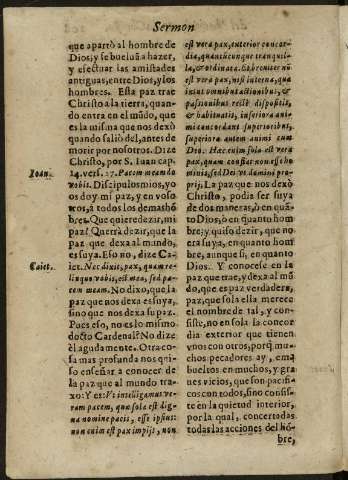 Sermon
que apartò al hombre de
Dios, y se bueluā a hazer,
y efectuar las amistades
antiguas, entre Dios, y los
hombres. Esta paz trae
Christo a la tierra, quan-
do entra en el mũdo, que
es la misma que nos dexò
quando salió del, antes de
morir por nosotros. Dize
Christo, por S. Iuan cap.
Ioan.
14. vers. 27. Pacem meam do
vobis. Discipulos mios, yo
os doy mi paz, y en voso-
tros, à todos los demas hõ-
bres. Que quiere dezir, mi
paz? Querrà dezir, que la
paz que dexa al mundo,
es suya. Eso no, dize Ca-
Caiet.
iet. Nec dixit, pax, quam re-
linquo vobis, est mea, sed pa-
cem meam. No dixo, que la
paz que nos dexa es suya,
sino que nos dexa su paz.
Pues eso, no es lo mismo
docto Cardenal? No dize
èl agudamente. Otra co-
sa mas profunda nos qui-
so enseñar a conocer de
la paz que al mundo tra-
xo: Y es: Vt intelligamus ve-
ram pacem, quæ sola est dig-
na nomine pacis, esse ipsius:
non enim est pax impijs, non
est vera pax, exterior concor-
dia, quanticunque tranquil-
la, & ordinata. Et breuiter nõ
est vera pax, nisi interna, qua
insut omnibus actionibus, &
passionibus rectè dispositis,
& habitualis, inferiora ani-
mi concordant superioribus,
superiora autem animi cum
Deo. Hæc enim sola est vera
pax, quam constat non esse ho
minis, sed Dei vt domini pro-
prij. La paz que nos dexó
Christo, podia ser suya
de dos maneras, ò en quã-
to Dios, ò en quanto hom
bre; y quiso dezir, que no
era suya, en quanto hom
bre, aunque si, en quanto
Dios. Y conocese en la
paz que trae, y dexa al mũ
do, que es paz verdadera,
paz, que sola ella merece
el nombre de tal, y con-
siste, no en sola la concor
dia exterior que tienen
vnos con otros, porq̃ mu-
chos pecadores ay, em-
bueltos en muchos, y gra-
ues vicios, que son pacifi-
cos con todos, sino consis-
te en la quietud interior,
por la qual, concertadas
todas las acciones del hō-
bre,